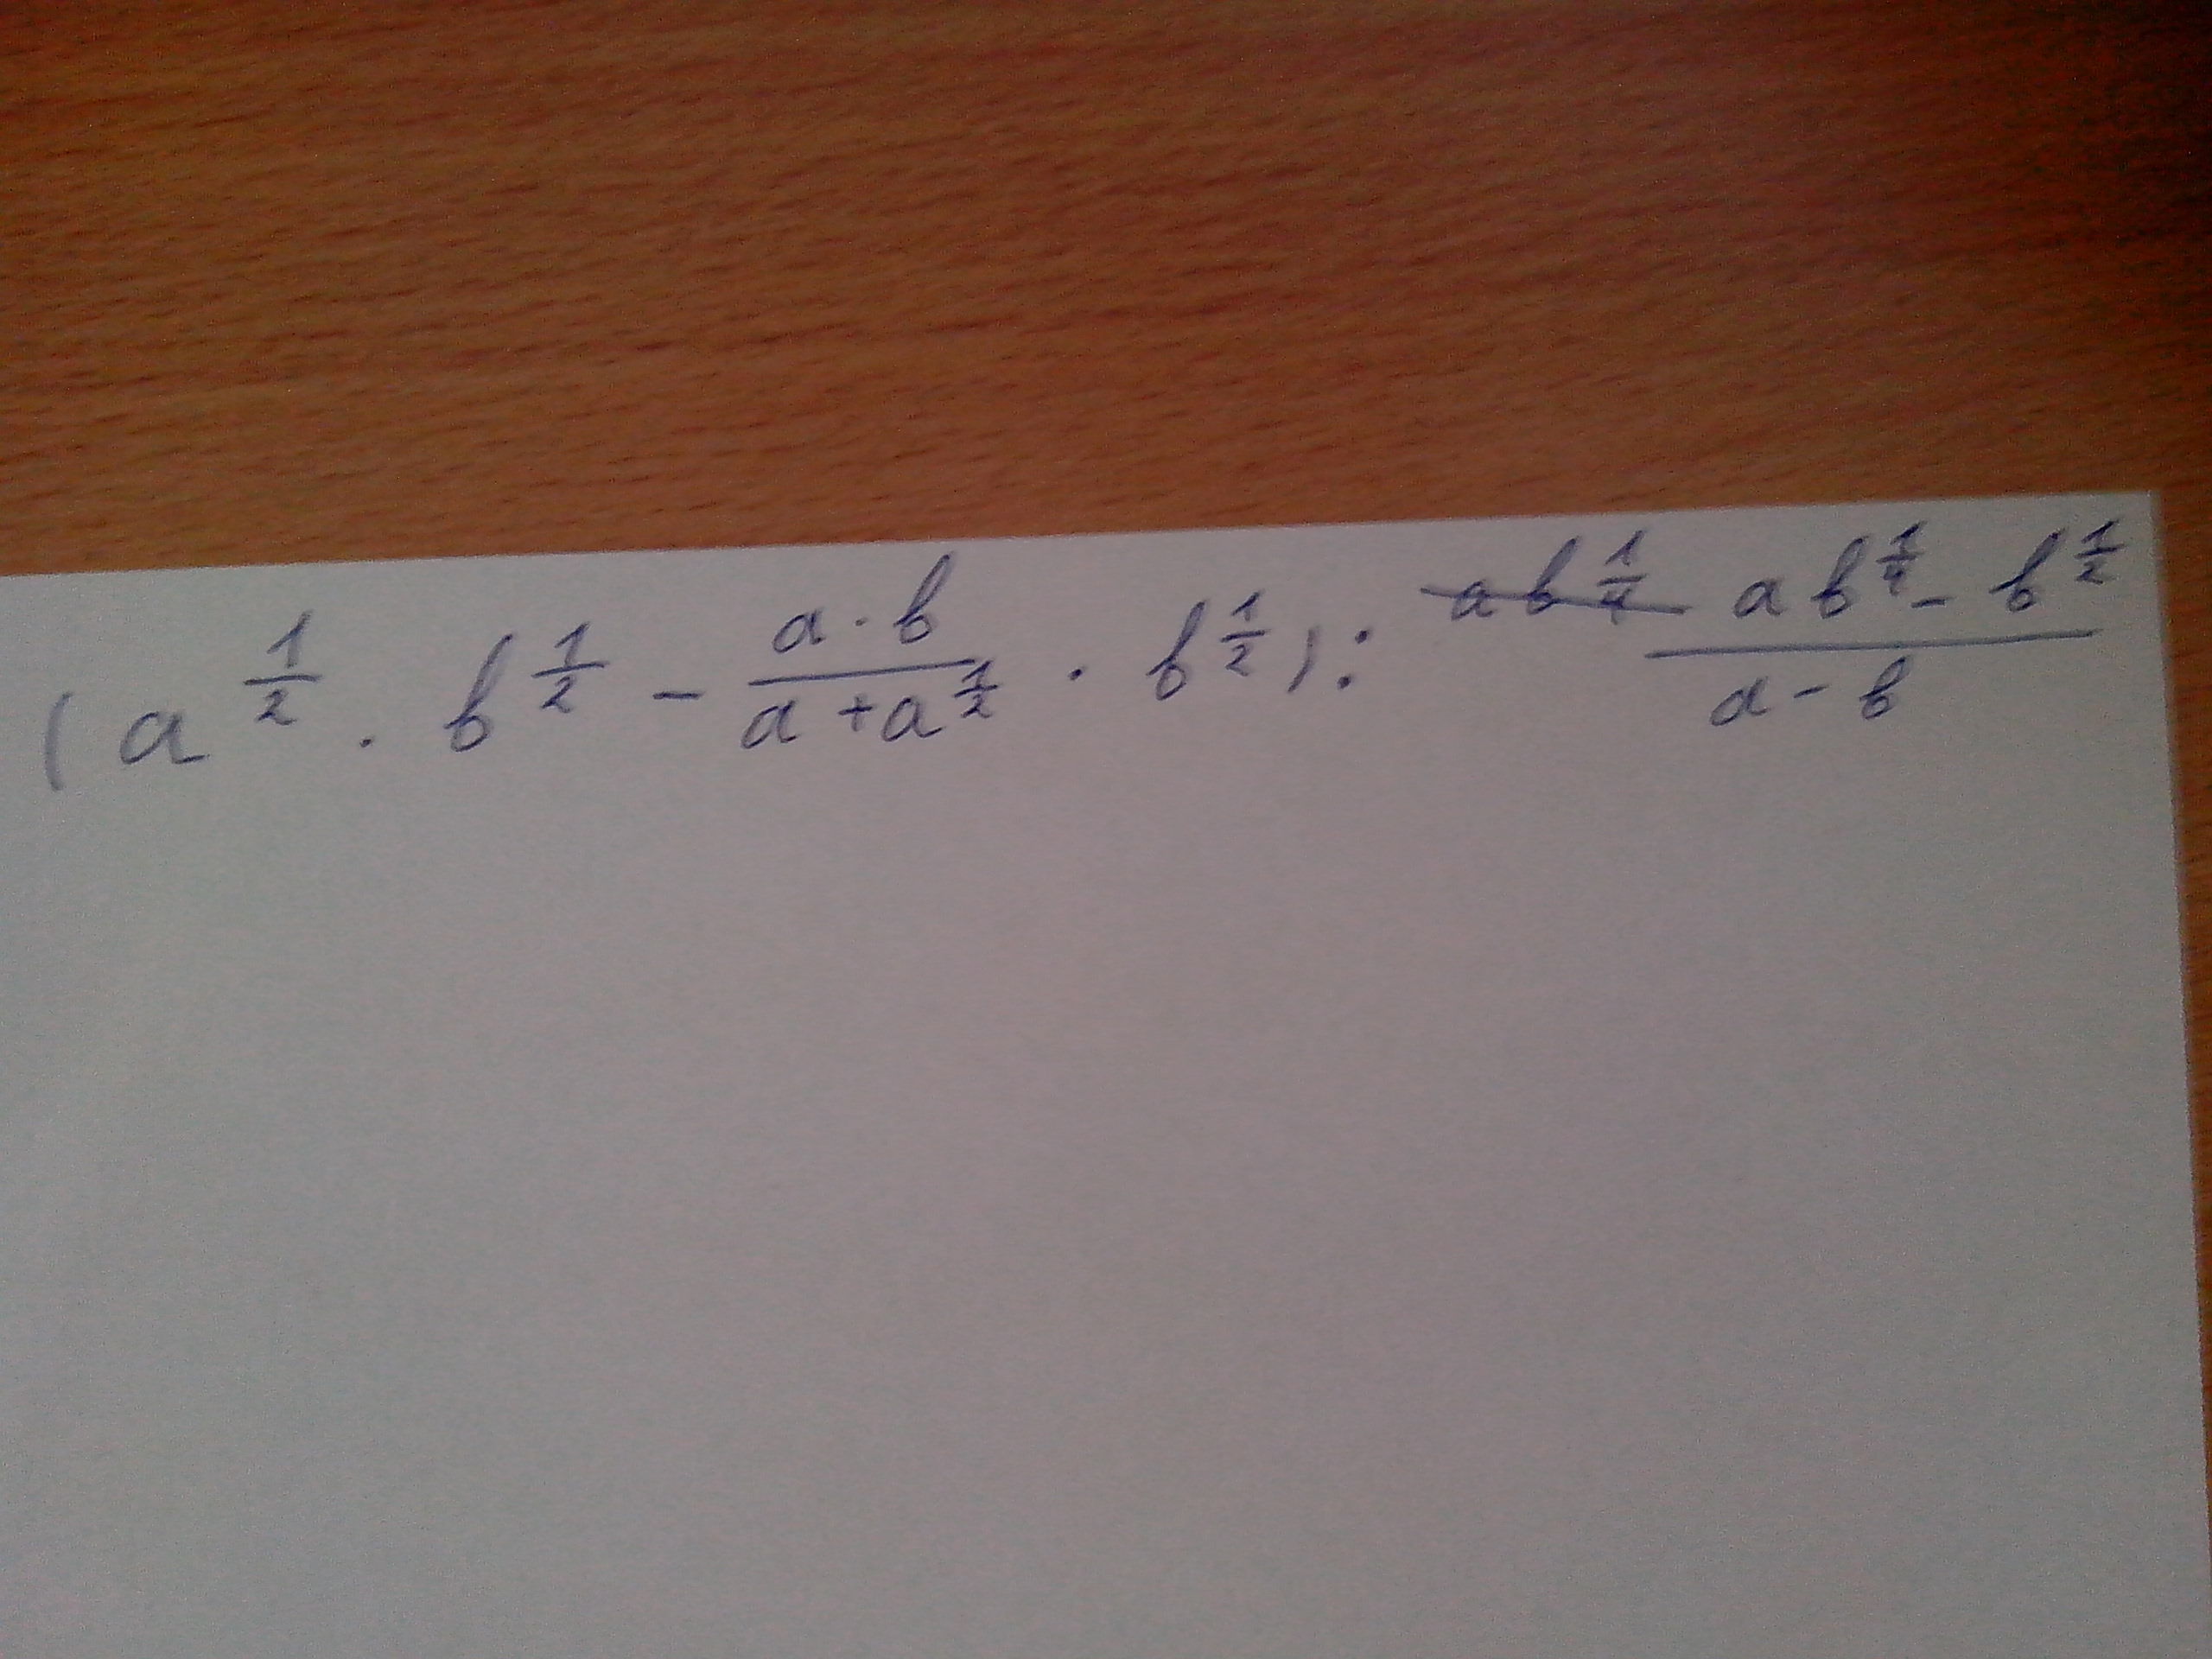 (a^{1/2} · b^{1/2} - \frac{a · b}{a + a^{1/2}} · b^{1/2}) : ~~ab^{1/4}~~ \frac{ab^{1/4} - b^{1/2}}{a - b}